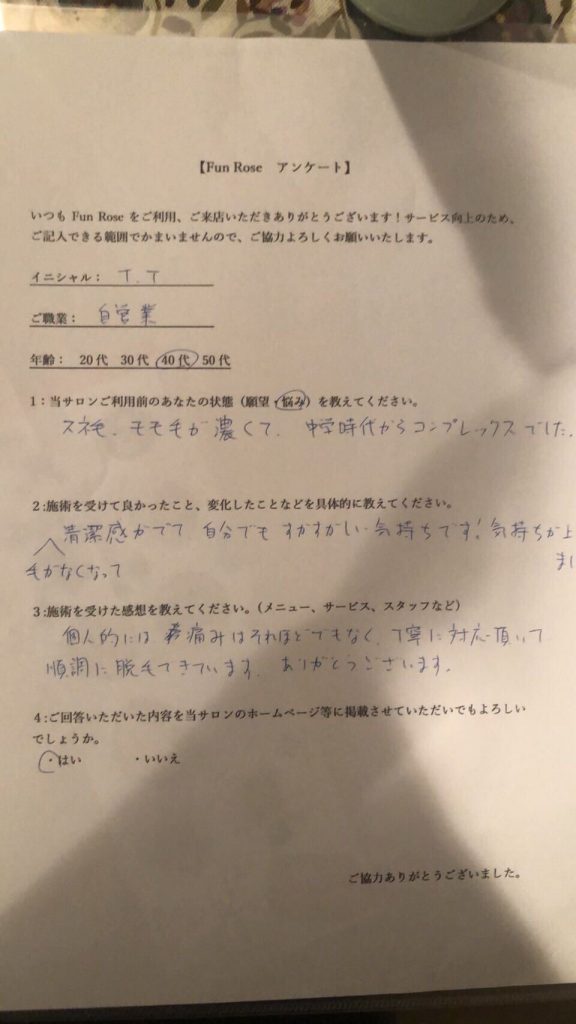 【Fun Rose アンケート】
いつも Fun Rose をご利用、ご来店いただきありがとうございます！サービス向上のため、
ご記入できる範囲でかまいませんので、ご協力よろしくお願いいたします。
イニシャル： T.T
ご職業： 自営業
年齢： 20代 30代 40代 50代
1：当サロンご利用前のあなたの状態（願望・悩み）を教えてください。
スネ毛、モモ毛が濃くて、中学時代からコンプレックスでした。
2:施術を受けて良かったこと、変化したことなどを具体的に教えてください。
清潔感がでて 自分でもすがすがしい気持ちです！気持ちが上
毛がなくなって
まし
3:施術を受けた感想を教えてください。（メニュー、サービス、スタッフなど）
個人的には 痛みはそれほどでもなく、丁寧に対応頂いて
順調に脱毛できています。ありがとうございます。
4:ご回答いただいた内容を当サロンのホームページ等に掲載させていただいでもよろしい
でしょうか。
・はい ・いいえ
ご協力ありがとうございました。